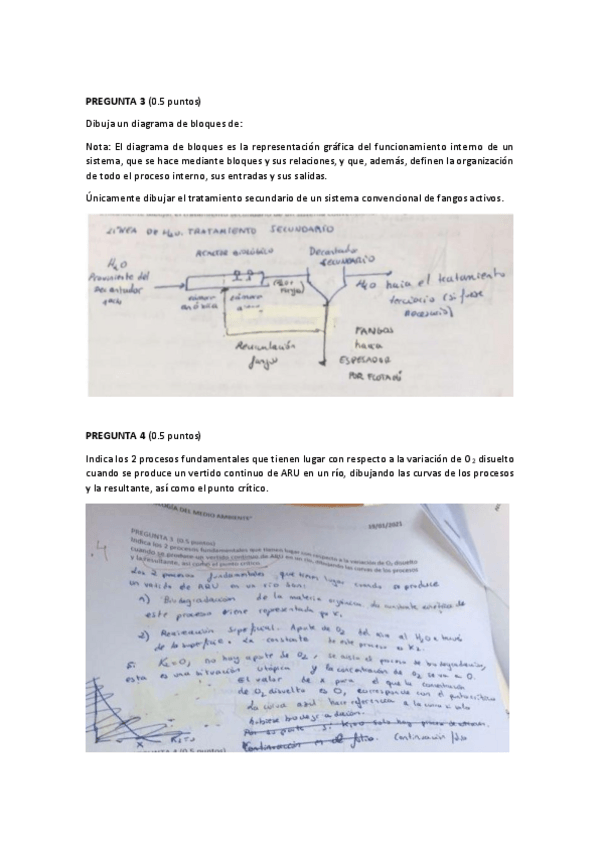 PREGUNTA 3 (0.5 puntos)
Dibuja un diagrama de bloques de:
Nota: El diagrama de bloques es la representación gráfica del funcionamiento interno de un
sistema, que se hace mediante bloques y sus relaciones, y que, además, definen la organización
de todo el proceso interno, sus entradas y sus salidas.
Únicamente dibujar el tratamiento secundario de un sistema convencional de fangos activos.
LINEA DE H2O. TRATAMIENTO SECUNDARIO
REACTOR BIOLÓGICO
Decantador
SECUNDARIO
H2O
Proveniente del
decantador
H2O hacia el tratamiento
terciario (si fuese
necesario)
cámara
anóxica
cámara
Recirculación
fangos
FANGOS
hacia
ESPESADOR
POR FLOTACIÓ
PREGUNTA 4 (0.5 puntos)
Indica los 2 procesos fundamentales que tienen lugar con respecto a la variación de O₂ disuelto
cuando se produce un vertido continuo de ARU en un río, dibujando las curvas de los procesos
y la resultante, así como el punto crítico.
DEL MEDIO AMBIENTE"
19/01/2021
PREGUNTA 3 (0.5 puntos)
Indica los 2 procesos fundamentales que tienen lugar con respecto a la variación de O₂ disuelto
cuando se produce un vertido continuo de ARU en un río, dibujando las curvas de los procesos
y la resultante, así como el punto crítico.
Los 2 procesos fundamentales que tienen lugar cuando se produce
un vertido de ARU en un río son:
1) Biodegradación de la materia orgánica
este proceso viene representada por
2) Reaireación superficial. Aporte de O2 del aire al H2O a través
de la superficie. La constante de este proceso es K2.
Si K2=0, no hay aporte de O2, se inicia el proceso de biodegradación,
esta es una situación utópica y la concentración de O2 se va a 0.
El valor de x para el que la concentración
de O2 disuelto es 0, corresponde con el punto crítico
La curva azul hace referencia a la curva si solo
hubiese biodegradación.
X
K2=0
Continuación
Continuación folio